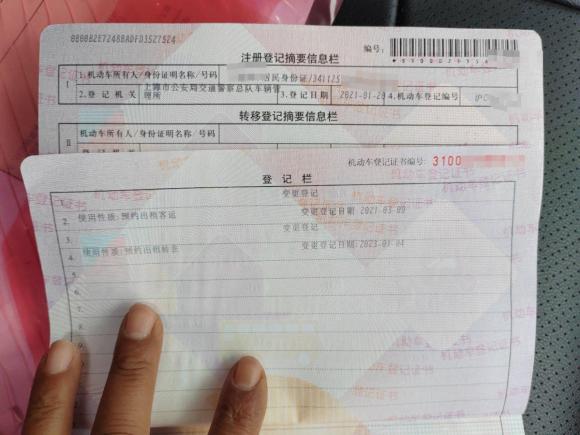 0800B2E7248BADFD35Z75Z4
编号:
注册登记摘要信息栏
I
1.机动车所有人/身份证明名称/号码
居民身份证/341125
2.登记机关
上海市公安局交通警察总队车辆管理所
3.登记日期
2021-01-28
4.机动车登记编号
沪C
转移登记摘要信息栏
II
机动车所有人/身份证明名称/号码
机动车登记证书编号: 3100
登记栏
1.
变更登记
2.
使用性质:预约出租客运
变更登记日期:2021-03-09
3.
变更登记
4.
使用性质:预约出租转非
变更登记日期:2023-01-04
5
6
7
8
机动车登记证书